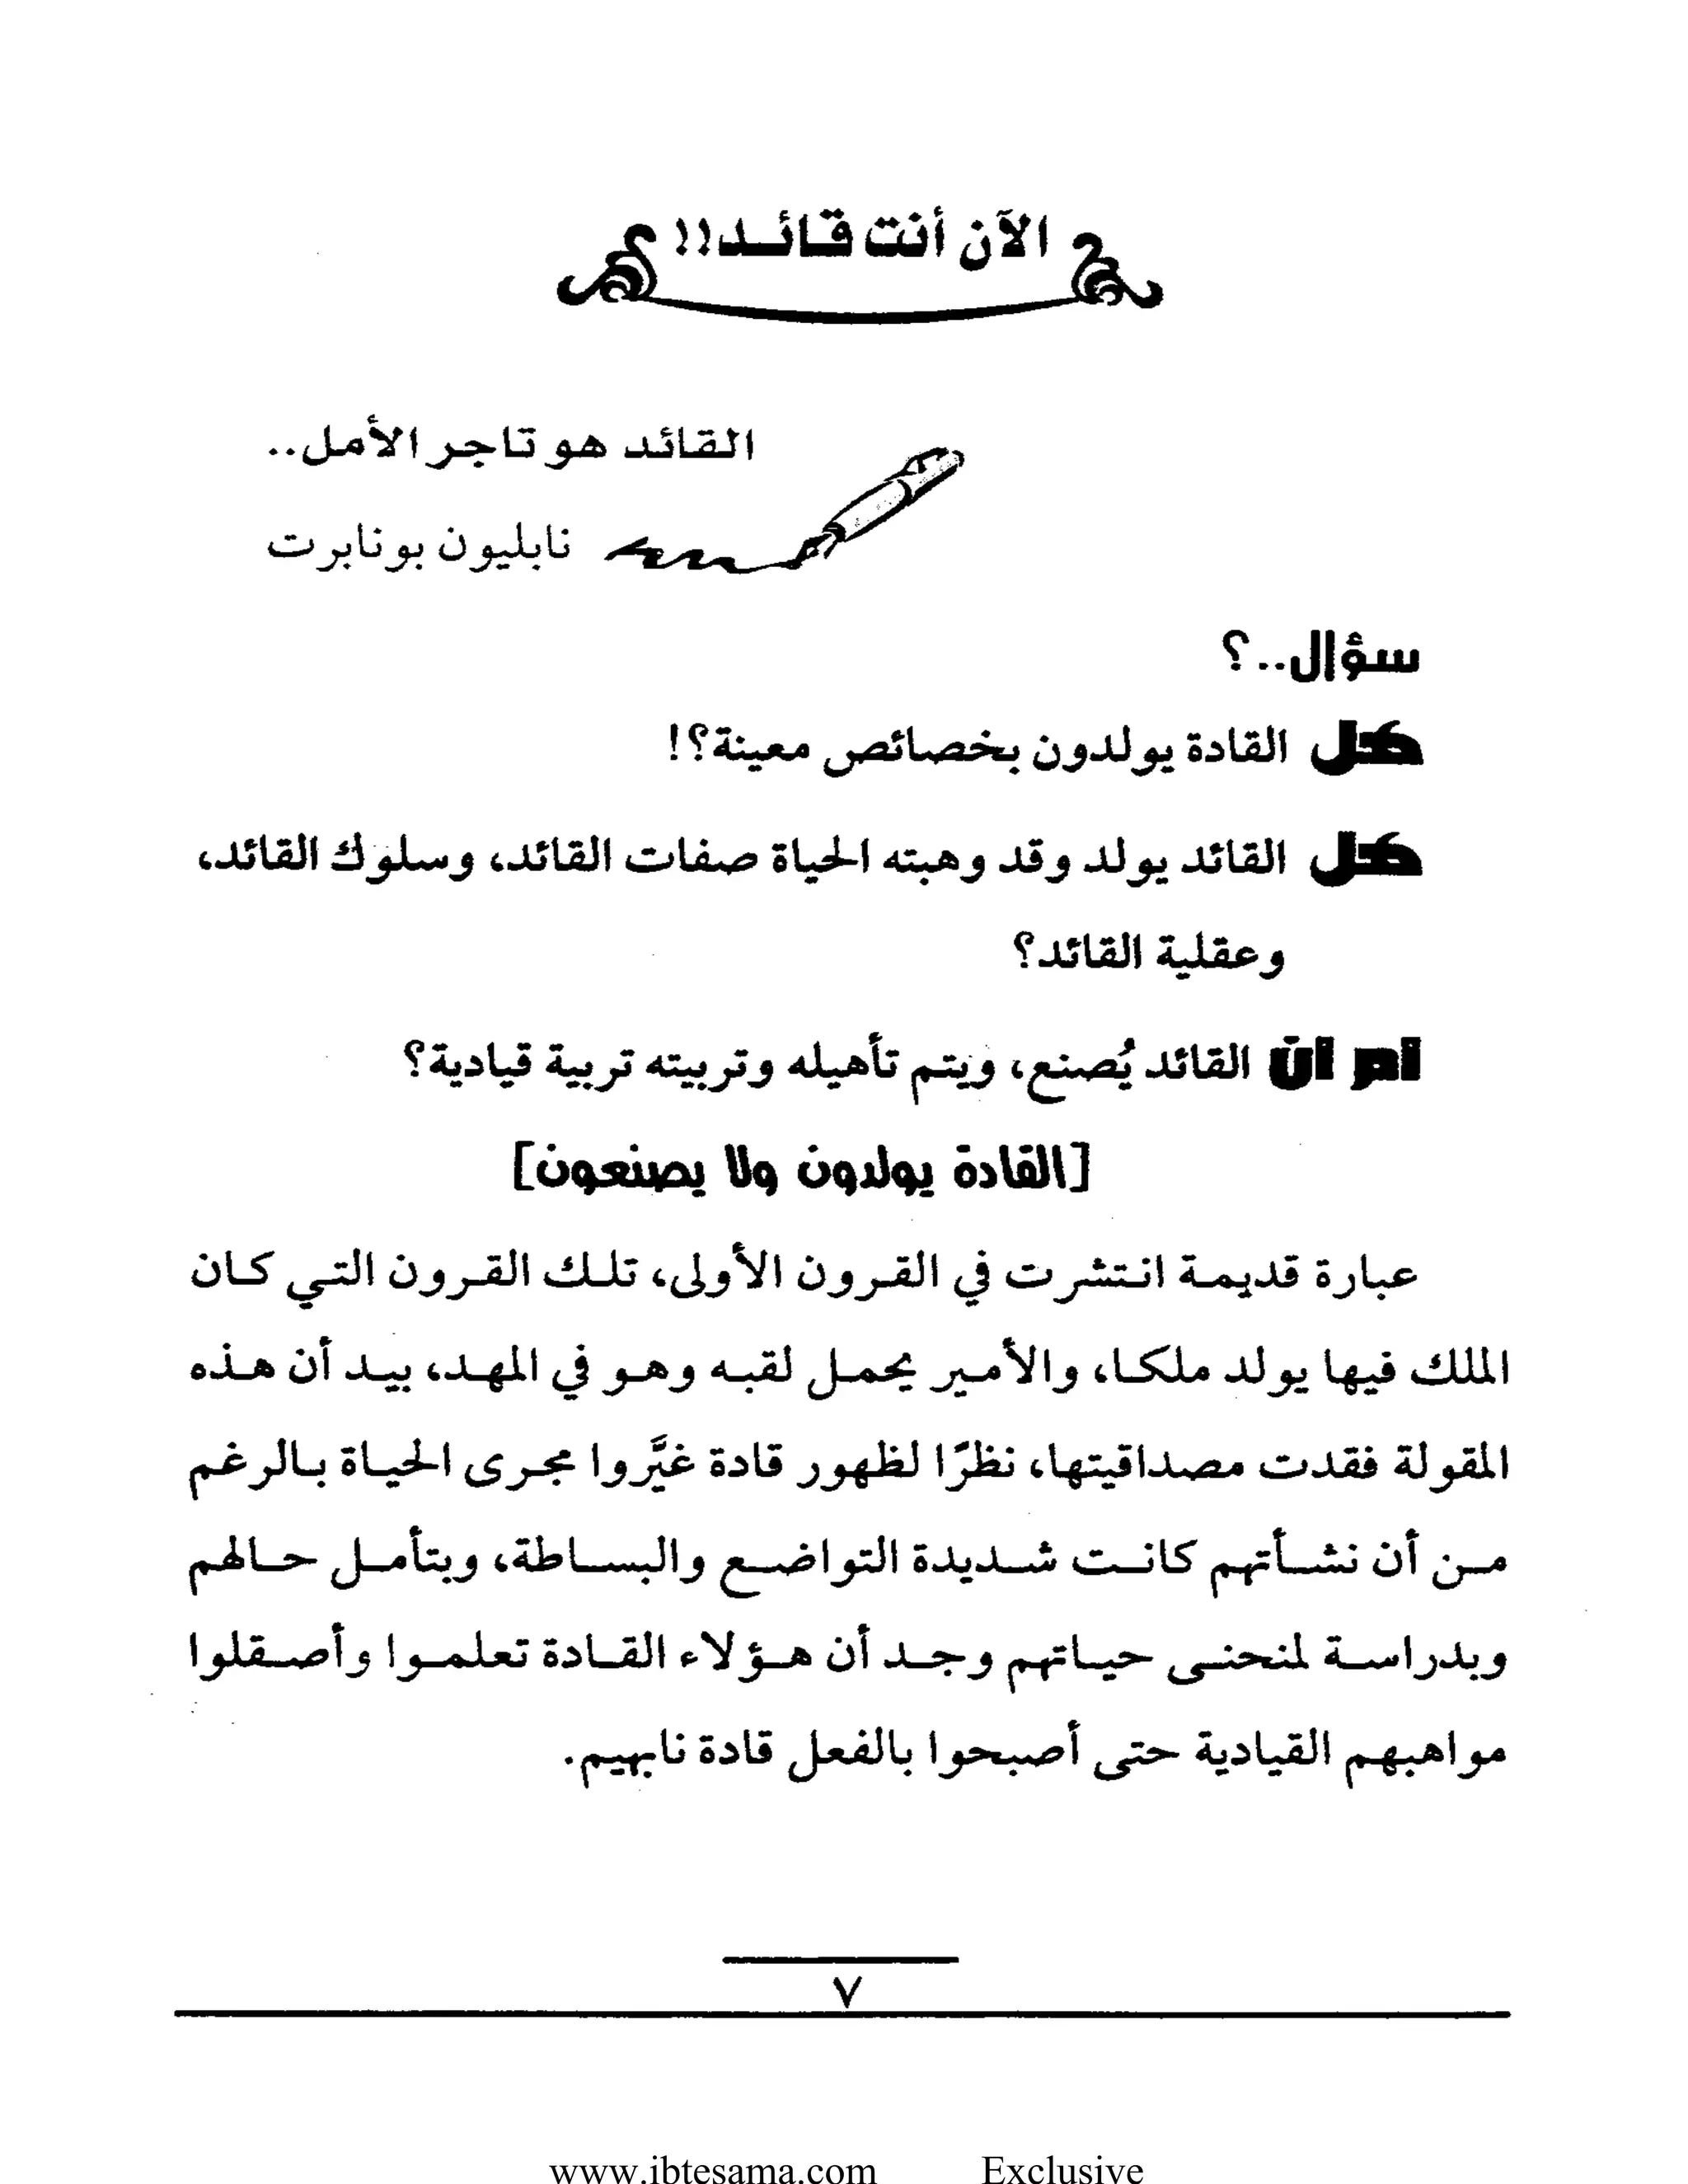 الآن أنت قائد!!
القائد هو تاجر الأمل..
نابليون بونابرت
سؤال..؟
هل القادة يولدون بخصائص معينة؟!
هل القائد يولد وقد وهبته الحياة صفات القائد، وسلوك القائد،
وعقلية القائد؟
أم أن القائد يُصنع، ويتم تأهيله وتربيته تربية قيادية؟
[القادة يولدون ولا يصنعون]
عبارة قديمة انتشرت في القرون الأولى، تلك القرون التي كان
الملك فيها يولد ملكا، والأمير يحمل لقبه وهو في المهد، بيد أن هذه
المقولة فقدت مصداقيتها، نظرًا لظهور قادة غيَّروا مجرى الحياة بالرغم
من أن نشأتهم كانت شديدة التواضع والبساطة، ويتأمل حالهم
وبدراسة لمنحنى حياتهم وجد أن هؤلاء القادة تعلموا وأصقلوا
مواهبهم القيادية حتى أصبحوا بالفعل قادة نابهيم.
٧
www.ibtesama.com Exclusive